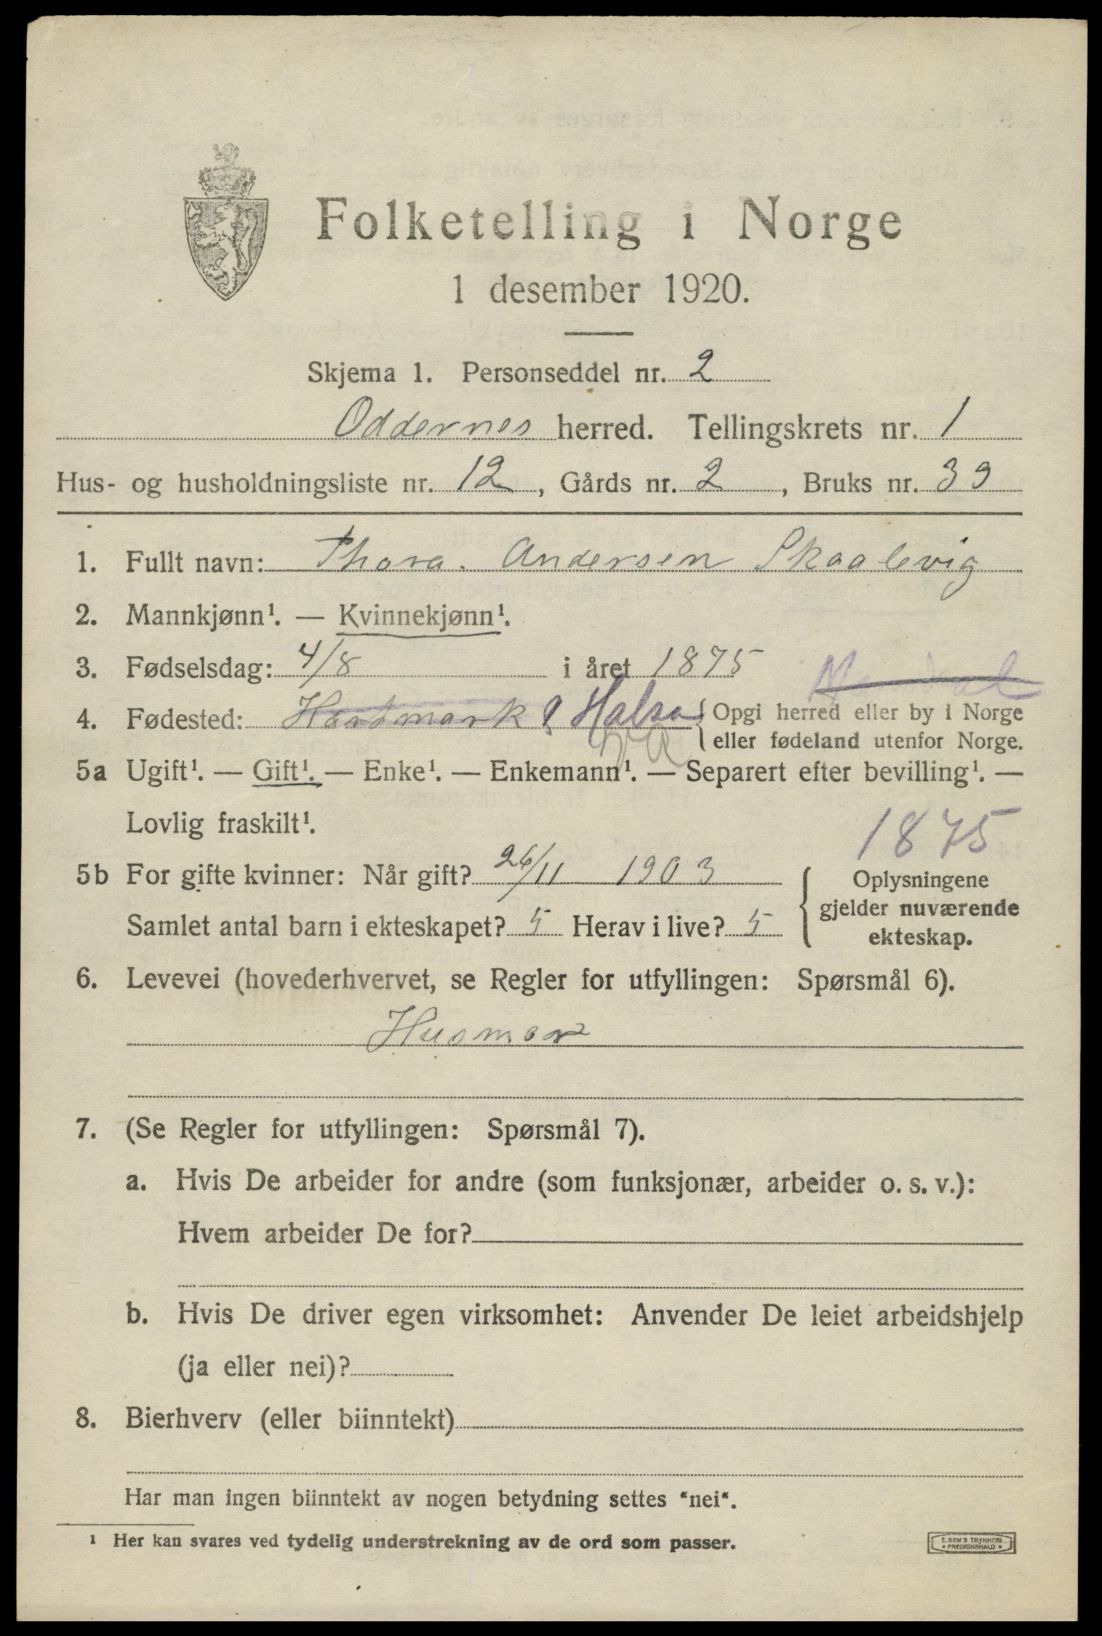 Folketelling i Norge
1 desember 1920.
Skjema 1. Personseddel nr. 2
Oddernes herred. Tellingskrets nr. 1
Hus- og husholdningsliste nr. 12, Gårds nr. 2, Bruks nr. 39
1. Fullt navn: Thora. Andersen Skaalevig
2. Mannkjønn¹. — Kvinnekjønn¹.
3. Fødselsdag: 4/8 i året 1875
Mandal
4. Fødested: Hartmark Halsaa {Opgi herred eller by i Norge
eller fødeland utenfor Norge.
5a Ugift¹. — Gift¹. — Enke¹. — Enkemann¹. — Separert efter bevilling¹. —
Lovlig fraskilt¹.
1875
5b For gifte kvinner: Når gift? 26/11 1903
Samlet antal barn i ekteskapet? 5 Herav i live? 5
{Oplysningene
gjelder nuværende
ekteskap.
6. Levevei (hovederhvervet, se Regler for utfyllingen: Spørsmål 6).
Husmor
7. (Se Regler for utfyllingen: Spørsmål 7).
a. Hvis De arbeider for andre (som funksjonær, arbeider o. s. v.):
Hvem arbeider De for?
b. Hvis De driver egen virksomhet: Anvender De leiet arbeidshjelp
(ja eller nei)?
8. Bierhverv (eller biinntekt)
Har man ingen biinntekt av nogen betydning settes "nei".
¹ Her kan svares ved tydelig understrekning av de ord som passer.
E. SEM'S TRYKKERI
• FREDRIKSHALD •